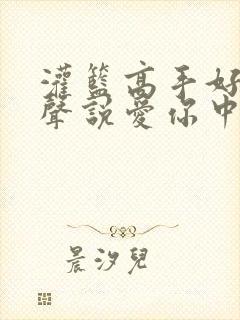 灌籃高手好
聲說愛你中
晨汐兒